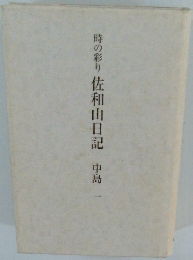 時の彩り 佐和山日記 中島 一